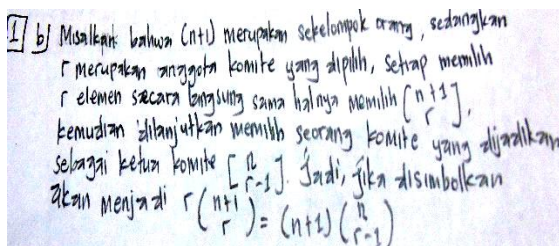 1 b) Misalkan bahwa (n+1) merupakan sekelompok orang, sedangkan
r merupakan anggota komite yang dipilih, setiap memilih
r elemen secara langsung sama halnya memilih [n+1 r],
kemudian dilanjutkan memilih seorang komite yang dijadikan
sebagai ketua komite [n r-1]. Jadi, jika disimbolkan
akan menjadi r(n+1 r) = (n+1)(n r-1)